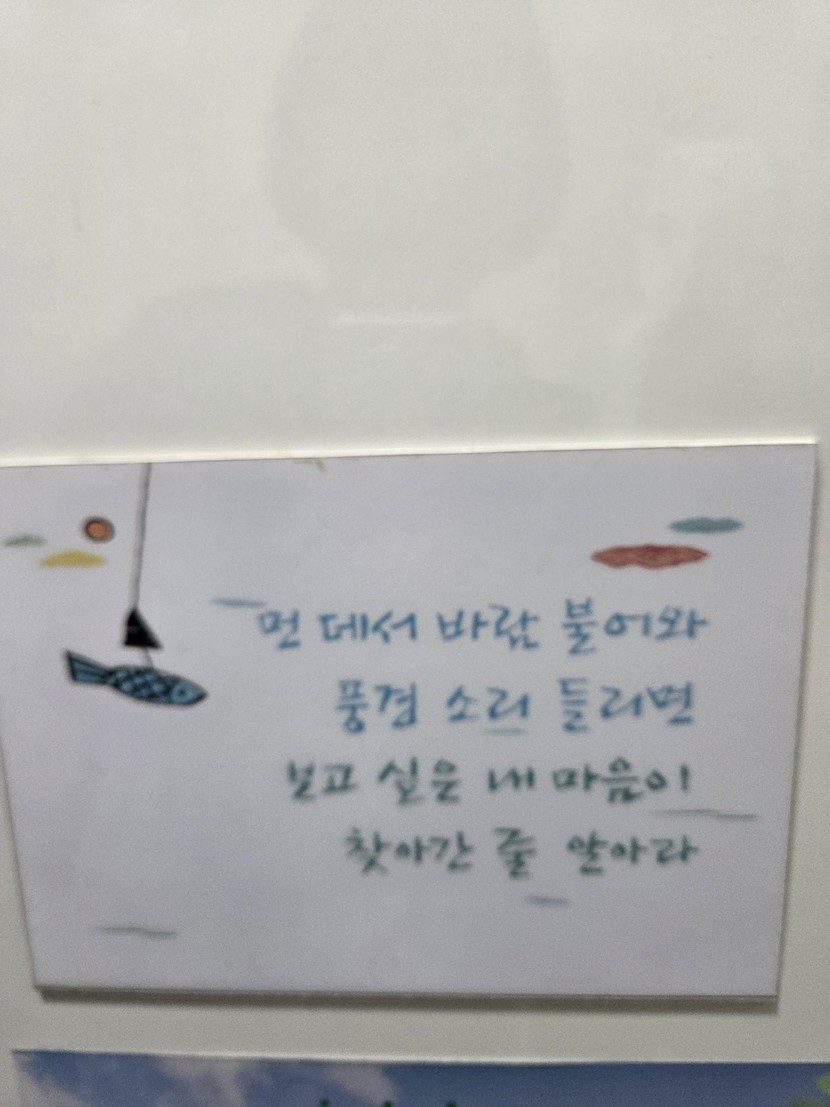 먼 데서 바람 불어와
풍경 소리 들리면
보고 싶은 내 마음이
찾아간 줄 알아라